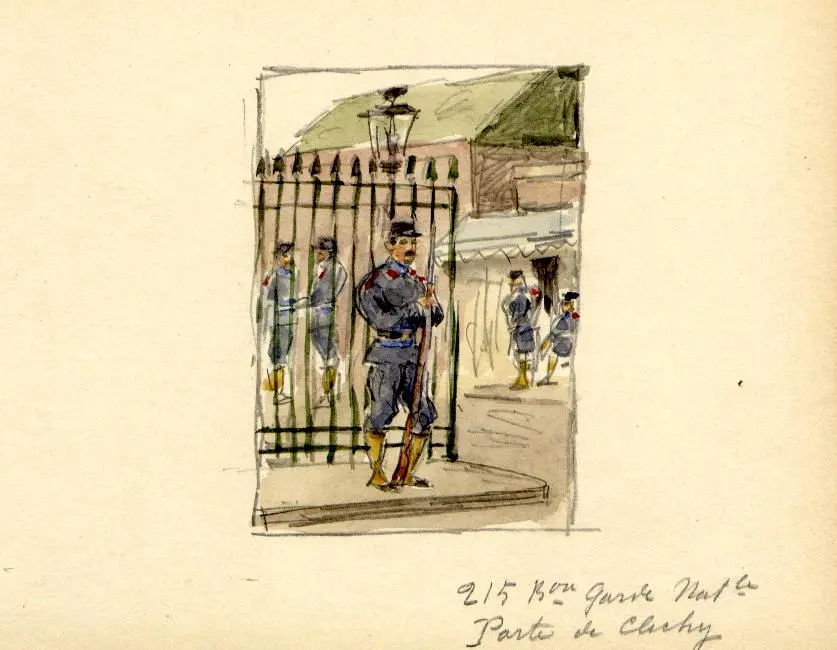 215 Bon Garde Natle
Porte de Clichy